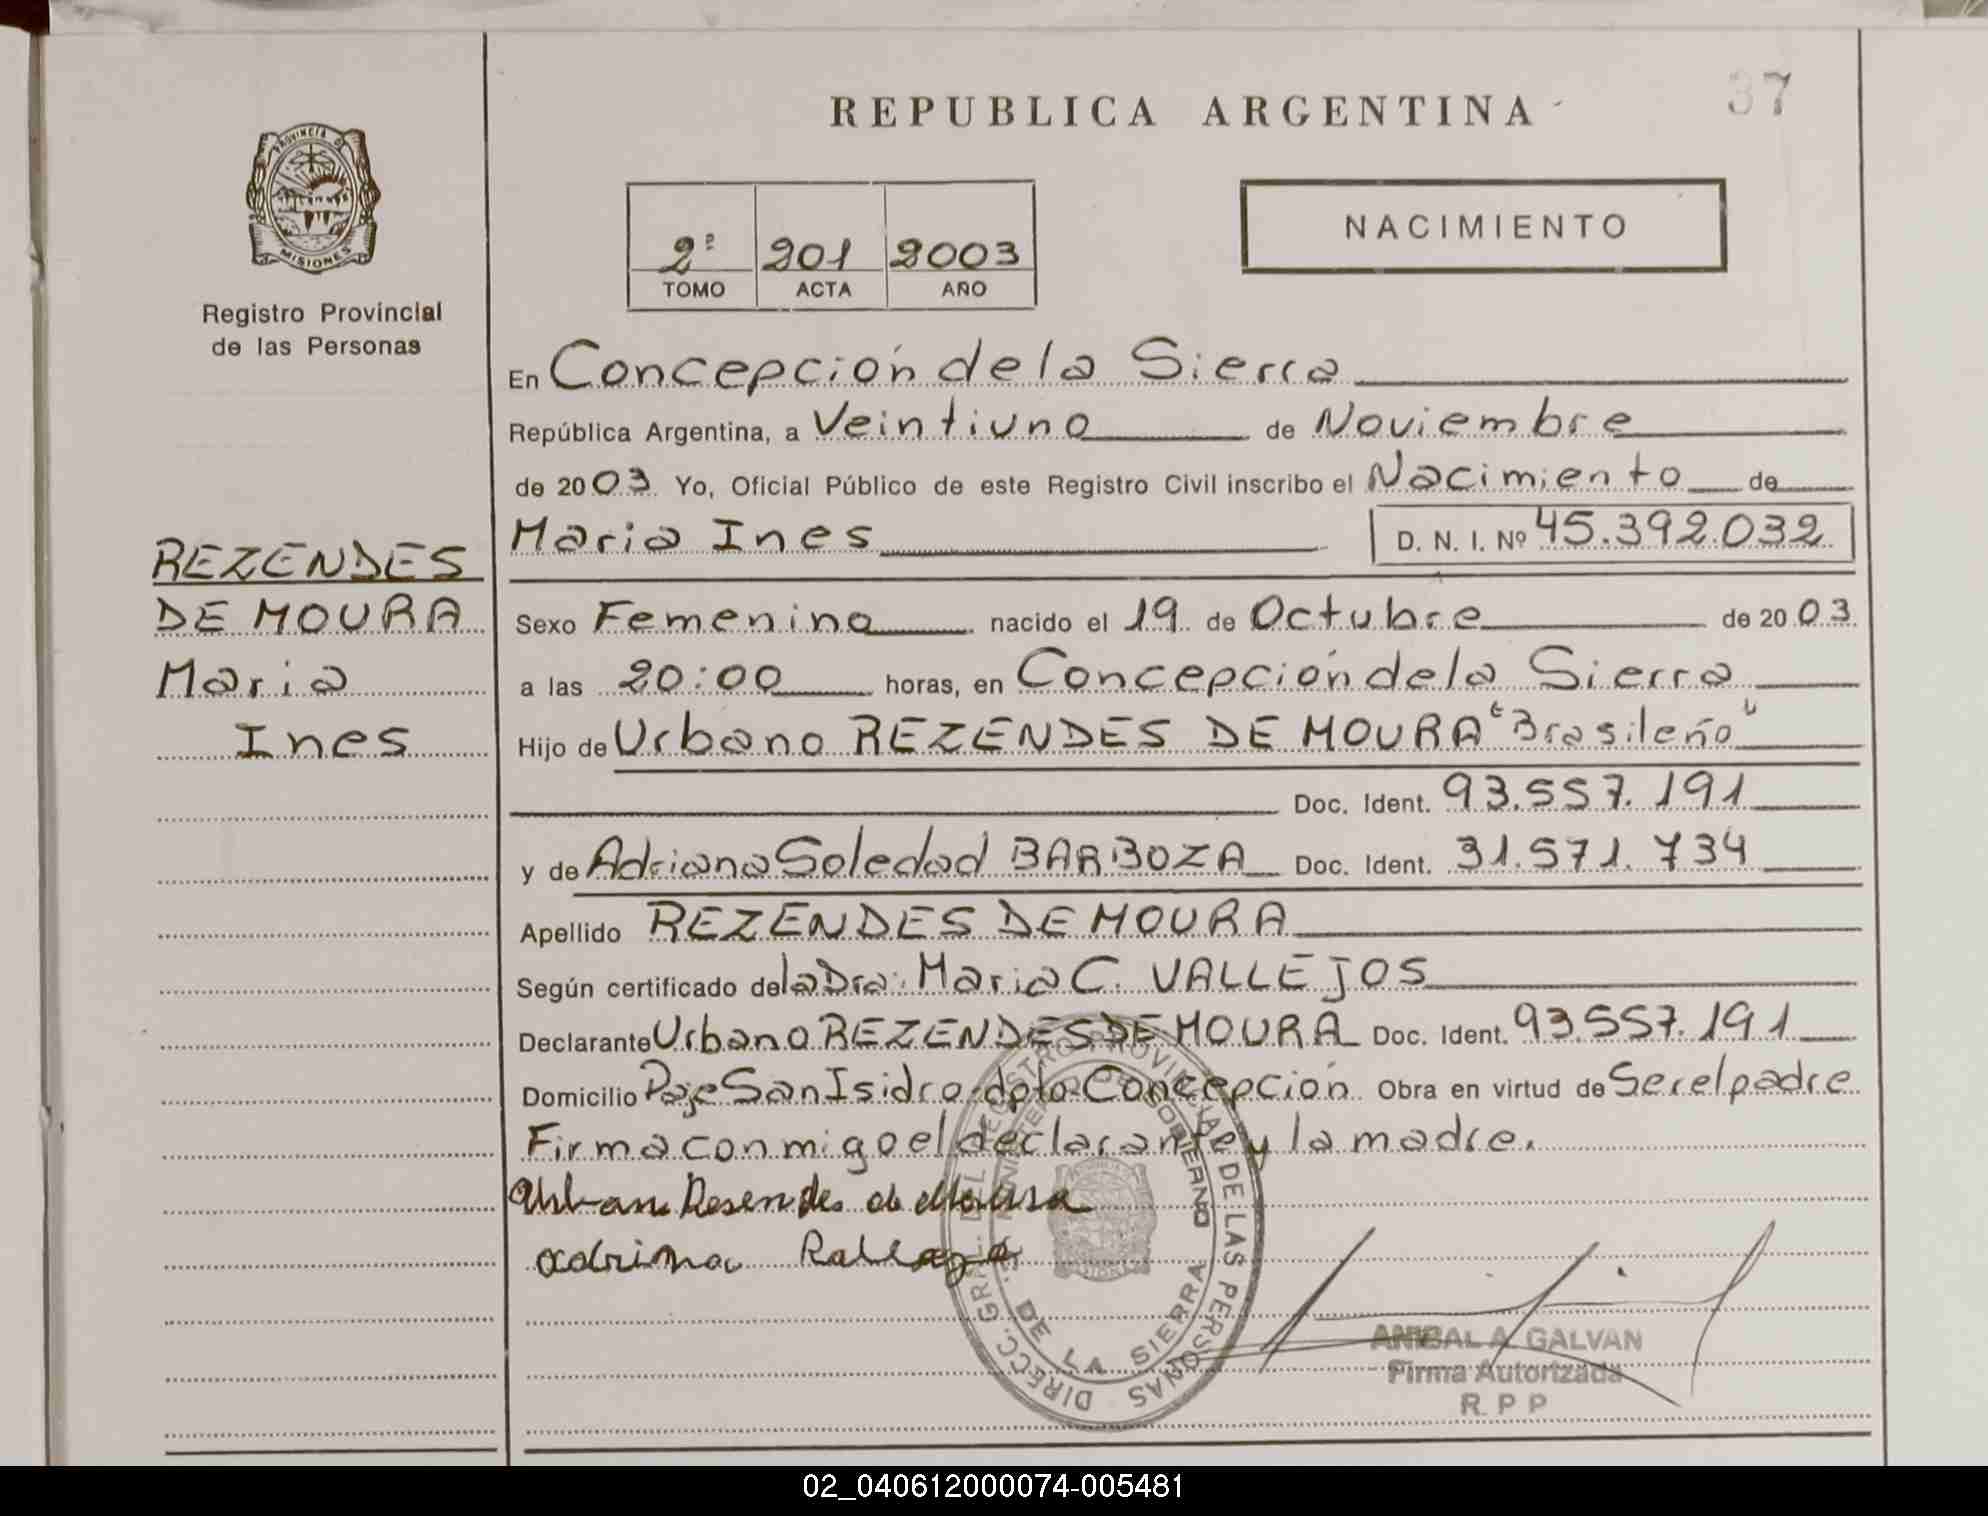 37
REPUBLICA ARGENTINA
PROVINCIA DE MISIONES
Registro Provincial
de las Personas
2º 201 2003
TOMO ACTA AÑO
NACIMIENTO
REZENDES
DE MOURA
Maria
Ines
En Concepción de la Sierra
República Argentina, a Veintiuno de Noviembre
de 2003. Yo, Oficial Público de este Registro Civil inscribo el Nacimiento de
Maria Ines D. N. I. Nº 45.392.032
Sexo Femenino nacido el 19 de Octubre de 2003
a las 20:00 horas, en Concepción de la Sierra
Hijo de Urbano REZENDES DE MOURA "Brasileño"
Doc. Ident. 93.557.191
y de Adriana Soledad BARBOZA Doc. Ident. 31.571.734
Apellido REZENDES DE MOURA
Según certificado de la Dra: Maria C. VALLEJOS
Declarante Urbano REZENDES DE MOURA Doc. Ident. 93.557.191
Domicilio Paje San Isidro-dpto Concepción Obra en virtud de Ser el padre
Firma conmigo el declarante y la madre.
DIRECC. GRAL. DEL REGISTRO PROVINCIAL DE LAS PERSONAS
MINISTERIO DE GOBIERNO
DE LA SIERRA
ANIBAL A. GALVAN
Firma Autorizada
R. P P
02_040612000074-005481